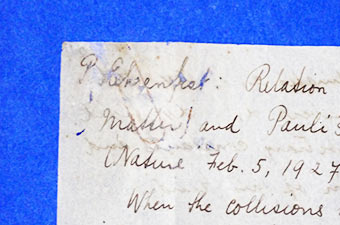 P Ehrenfest: Relation
Matter) and Pauli's
(Nature Feb. 5, 1927
When the collisions